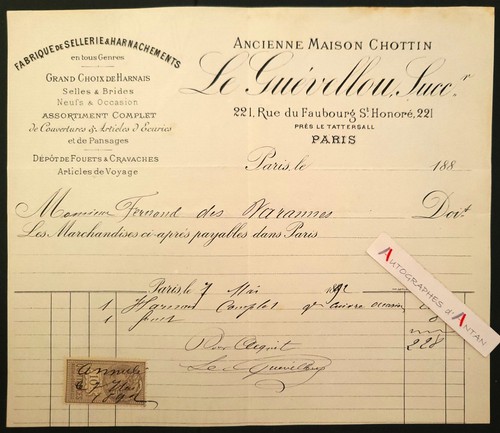 FABRIQUE DE SELLERIE & HARNACHEMENTS
en tous Genres
GRAND CHOIX DE HARNAIS
Selles & Brides
Neufs & Occasion
ASSORTIMENT COMPLET
de Couvertures & Articles d'Ecuries
et de Pansages
DÉPOT DE FOUETS & CRAVACHES
Articles de Voyage
ANCIENNE MAISON CHOTTIN
Le Guévellou, Succr
221, Rue du Faubourg St Honoré, 221
PRÈS LE TATTERSALL
PARIS
Paris, le 188
Monsieur Fernand des Varannes Doit
Les Marchandises ci après payables dans Paris
Paris le 7 Mai 1892
1 Harnais Complet cuivre occasion
1 fouet
228
Pour Acquit
Le Guevellou
Annulé
le 7 Mai
1892
10
AUTOGRAPHES d'ANTAN